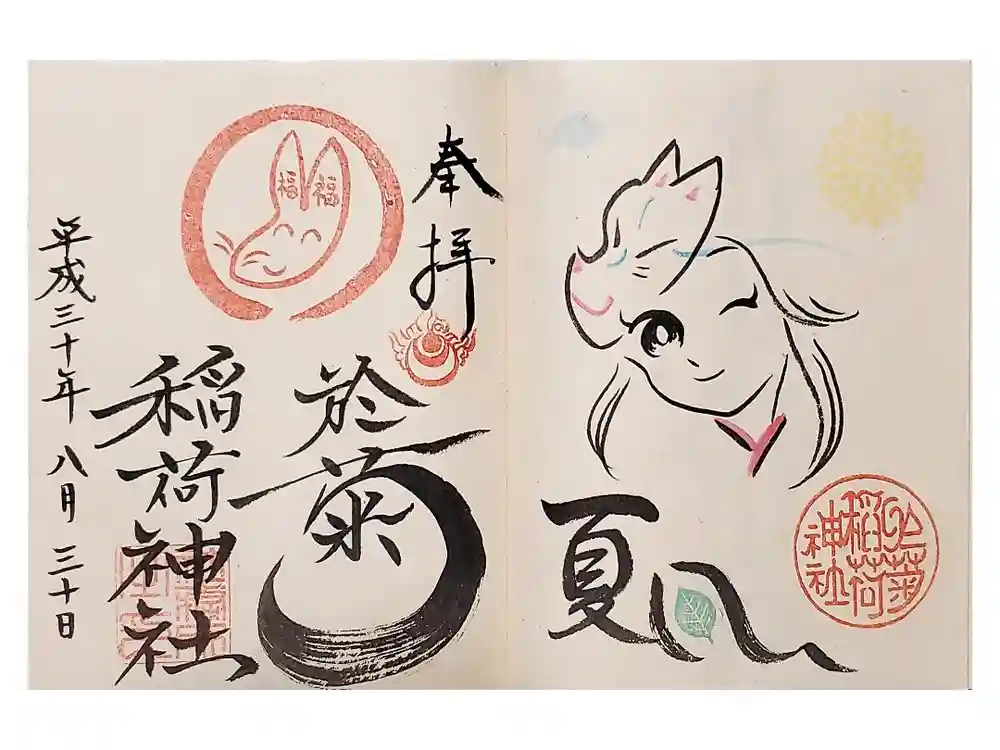 夏風
於菊稲荷神社
奉拝
於菊
稲荷神社
平成三十年 八月 三十日
福 福